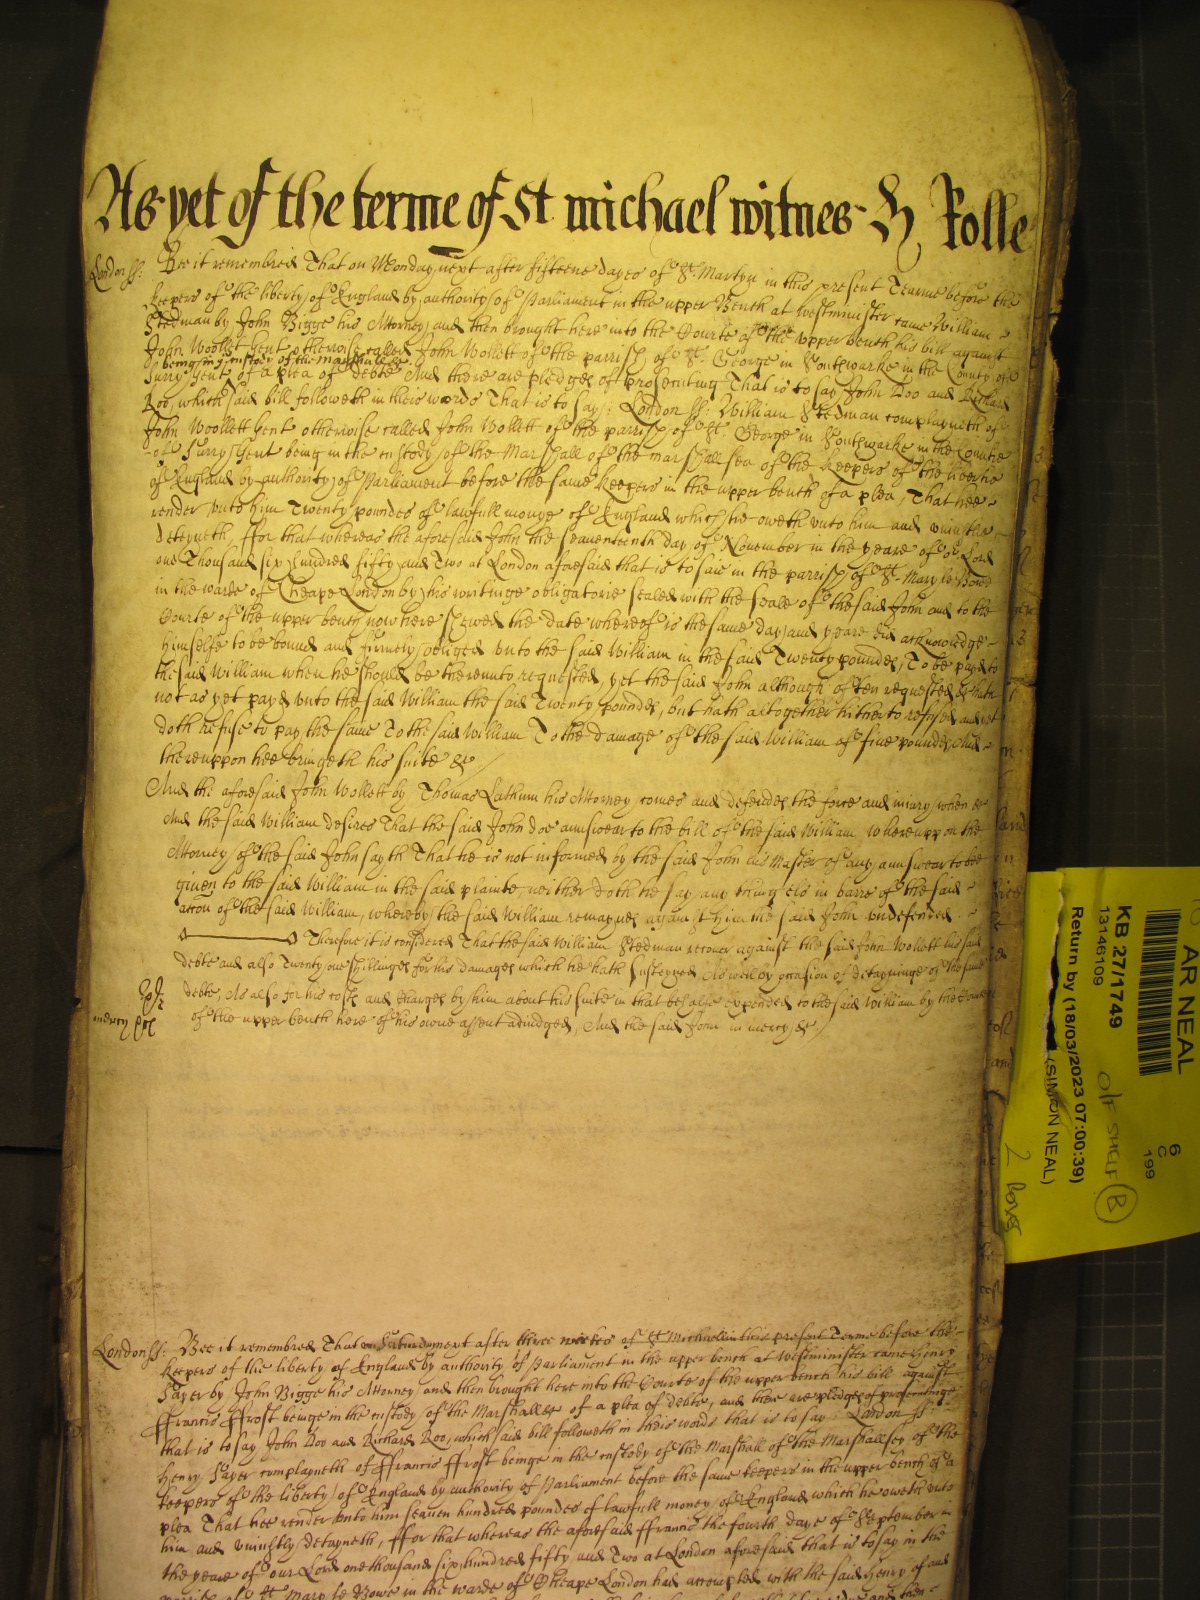 As yet of the terme of St michael witnes H Rolle
London ss: Bee it remembred That on Monday next after fifteene dayes of St. Martyn in this present Tearme before the
keepers of the liberty of England by authority of Parliament in the upper Bench at westminster came William
Stedman by John Bigge his Attorney and then brought here into the Courte of the upper bench his bill against
John Woollett gent otherwise called John Wollett of the parrish of St. George in Southwarke in the County of
being in custody of the Marshall &c
Surry gent of a plea of debte And there are pledges of prosecuting That is to say John Doo and Richard
Roo, which said bill followeth in theis words That is to say: London ss: William Stedman complayneth of
John Woollett gent otherwise called John Wollett of the parrish of St. George in Southwarke in the Countie
of Surry gent being in the custody of the Marshall of the marshallsea of the keepers of the libertie
of England by authority of Parliament before the same keepers in the upper bench of a plea, That hee
render vnto him Twenty poundes of lawfull money of England which he oweth vnto him and vniustlie
deteyneth, ffor that whereas the aforesaid John the seauenteenth day of November in the yeare of or Lord
one Thousand six hundred fifty and Two at London aforesaid that is to saie in the parrish of St. Mary le Bowe
in the warde of Cheape London by his writinge obligatorie sealed with the seale of the said John and to the
Courte of the upper bench now here shewed the date whereof is the same day and yeare did acknowledge
himselfe to be bound and firmely obliged vnto the said William in the said Twenty poundes, To be payd to
the said William when he should be therevnto requested, yet the said John although often requested &c hath
not as yet payd vnto the said William the said Twenty poundes, but hath altogether hitherto refused and yet
doth refuse to pay the same To the said William To the damage of the said William of five poundes And
thereuppon hee bringeth his suite &c
And the aforesaid John Wollett by Thomas Lathum his Attorney comes and defendes the force and iniury when &c
And the said William desires That the said John doe aunswear to the bill of the said William Whereuppon the
Attorney of the said John sayth That he is not informed by the said John his Master of any aunswear to bee
given to the said William in the said plainte neither doth he say any thing els in barre of the said
accon of the said William, whereby the said William remaynes against him the said John vndefended
Therefore it is considered That the said William Stedman recover against the said John Wollett his said
debte and also Twenty one shillinges for his damages which he hath susteyned As well by occasion of detayninge of the same
debte, As also for his costs and charges by him about his suite in that behalfe expended to the said William by the Courte
of the upper bench here of his owne assent adiudged, And the said John in mercy &c
mercy
London ss: Bee it remembred That on Saturday next after three weekes of St Michaell in this present Terme before the
keepers of the liberty of England by authority of Parliament in the upper bench at Westminister came Henry
Sayer by John Bigge his Attorney and then brought here into the Courte of the upper bench his bill against
ffrancis ffrost beinge in the custody of the Marshall &c of a plea of debte, and there are pledges of prosecutinge
that is to say John Doo and Richard Roo, which said bill followeth in theis words that is to say: London ss:
Henry Sayer complayneth of ffrancis ffrost beinge in the custody of the Marshall of the Marshallsey of the
keepers of the liberty of England by authority of Parliament before the same keepers in the upper bench of a
plea That hee render vnto him seauen hundred poundes of lawfull money of England which he oweth vnto
him and vniustly detayneth, ffor that whereas the aforesaid ffrancis the fourth daye of September
the yeare of our Lord one thousand six hundred fifty and Two at London aforesaid that is to say in the
parrish of St Mary le Bowe in the warde of Cheape London had accompted with the said Henry of and
AR NEAL
KB 27/1749
13146109
Return by (18/03/2023 07:00:39)
(SIMON NEAL)
6
C
199
O/F SHELF
B